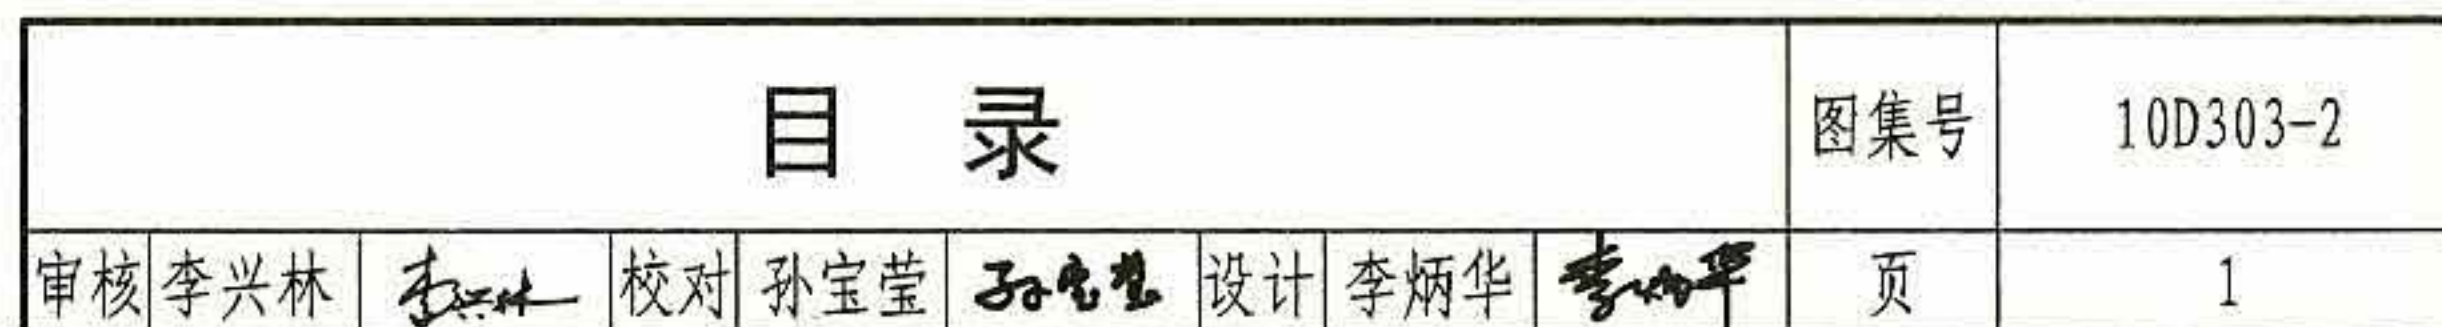 目 录 图集号 10D303-2
审核 李兴林 李兴林 校对 孙宝莹 孙宝莹 设计 李炳华 李炳华 页 1